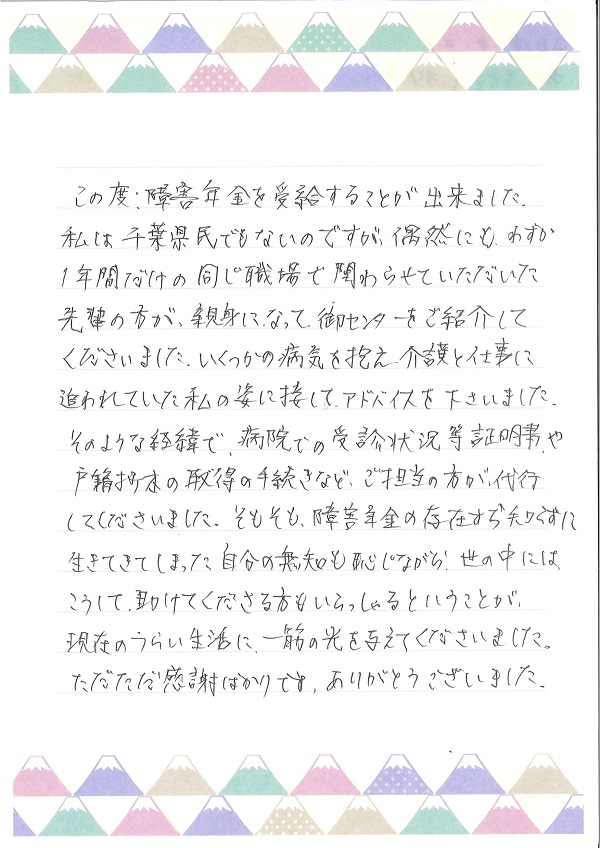 この度、障害年金を受給することが出来ました。
私は千葉県民でもないのですが、偶然にも、わずか
1年間だけの同じ職場で関わらせていただいた
先輩の方が、親身になって、御センターをご紹介して
くださいました。いくつかの病気を抱え、介護と仕事に
追われていた私の姿に接して、アドバイスを下さいました。
そのような経緯で、病院での受診状況等証明書や
戸籍抄本の取得の手続きなど、ご担当の方が、代行
してくださいました。そもそも、障害年金の存在すら知らずに
生きてきてしまった自分の無知も恥じながら、世の中には
こうして、助けてくださる方もいらっしゃるということが、
現在のつらい生活に、一筋の光を与えてくださいました。
ただただ感謝ばかりです。ありがとうございました。